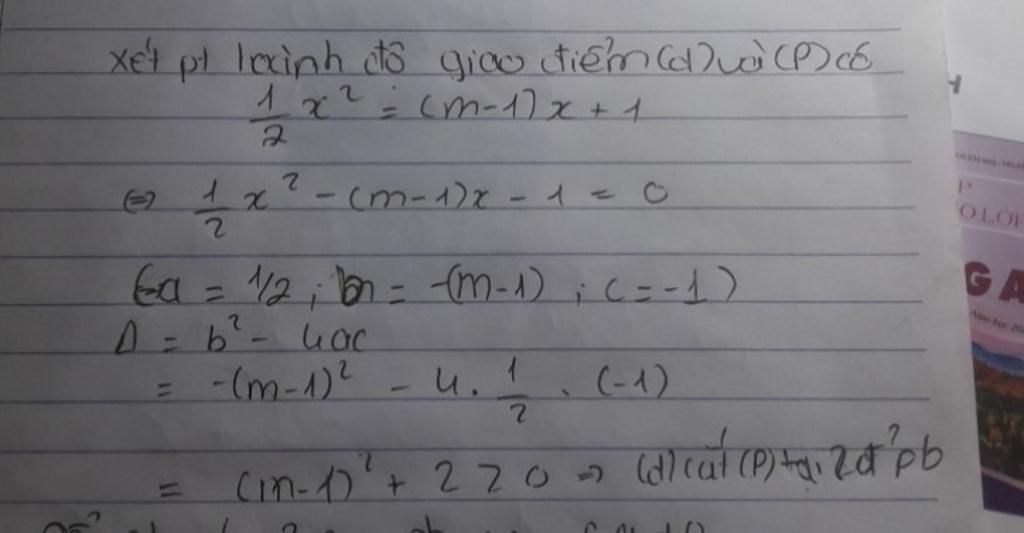 xét pt hoành độ giao điểm (d) với (P) có
1/2 x² = (m-1)x + 1
⇔ 1/2 x² - (m-1)x - 1 = 0
(a = 1/2 ; b = -(m-1) ; c = -1)
Δ = b² - 4ac
= -(m-1)² - 4 . 1/2 . (-1)
= (m-1)² + 2 > 0 ⇒ (d) cắt (P) tại 2 đ² pb
P
O LỚP
GA